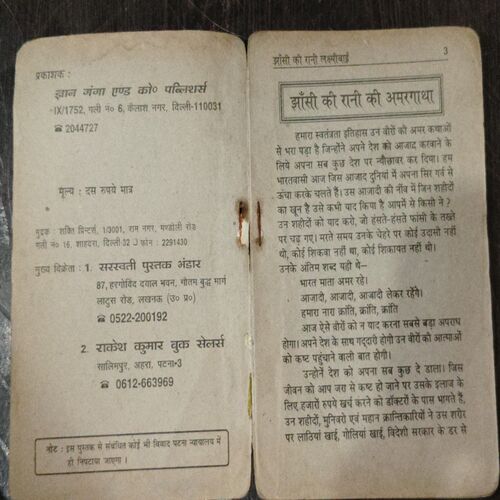 प्रकाशक :
ज्ञान गंगा एण्ड को० पब्लिशर्स
IX/1752, गली नं० 6, कैलाश नगर, दिल्ली-110031
☎ 2044727
मूल्य : दस रुपये मात्र
मुद्रक : शक्ति प्रिन्टर्स, 1/3001, राम नगर, मण्डोली रोड
गली नं० 16, शाहदरा, दिल्ली-32 फोन : 2291430
मुख्य विक्रेता : 1. सरस्वती पुस्तक भंडार
87, हरगोविंद दयाल भवन, गौतम बुद्ध मार्ग
लाटूस रोड, लखनऊ (उ० प्र०)
☎ 0522-200192
2. राकेश कुमार बुक सेलर्स
सालिमपुर, अहरा, पटना-3
☎ 0612-663969
नोट : इस पुस्तक से संबंधित कोई भी विवाद पटना न्यायालय में
ही निपटाया जाएगा ।
झाँसी की रानी लक्ष्मीबाई 3
झाँसी की रानी की अमरगाथा
हमारा स्वतंत्रता इतिहास उन वीरों की अमर कथाओं
से भरा पड़ा है जिन्होंने अपने देश को आजाद करवाने के
लिये अपना सब कुछ देश पर न्यौछावर कर दिया। हम
भारतवासी आज जिस आजाद दुनियाँ में अपना सिर गर्व से
ऊंचा करके चलते हैं। उस आजादी की नींव में जिन शहीदों
का खून है उसे कभी याद किया है आपमें से किसी ने ?
उन शहीदों को याद करो, जो हंसते-हंसते फांसी के तख्ते
पर चढ़ गए। मरते समय उनके चेहरे पर कोई उदासी नहीं
थी, कोई शिकवा नहीं था, कोई शिकायत नहीं थी।
उनके अंतिम शब्द यही थे—
भारत माता अमर रहे।
आजादी, आजादी, आजादी लेकर रहेंगे।
हमारा नारा क्रांति, क्रांति, क्रांति
आज ऐसे वीरों को न याद करना सबसे बड़ा अपराध
होगा। अपने देश के साथ गद्दारी होगी उन वीरों की आत्माओं
को कष्ट पहुंचाने वाली बात होगी।
उन्होंने देश को अपना सब कुछ दे डाला। जिस
जीवन को आप जरा से कष्ट हो जाने पर उसके इलाज के
लिए हजारों रुपये खर्च करने को डॉक्टरों के पास भागते हैं,
उन शहीदों, मुनिवरों एवं महान क्रान्तिकारियों ने उस शरीर
पर लाठियां खाईं, गोलियां खाईं, विदेशी सरकार के डर से